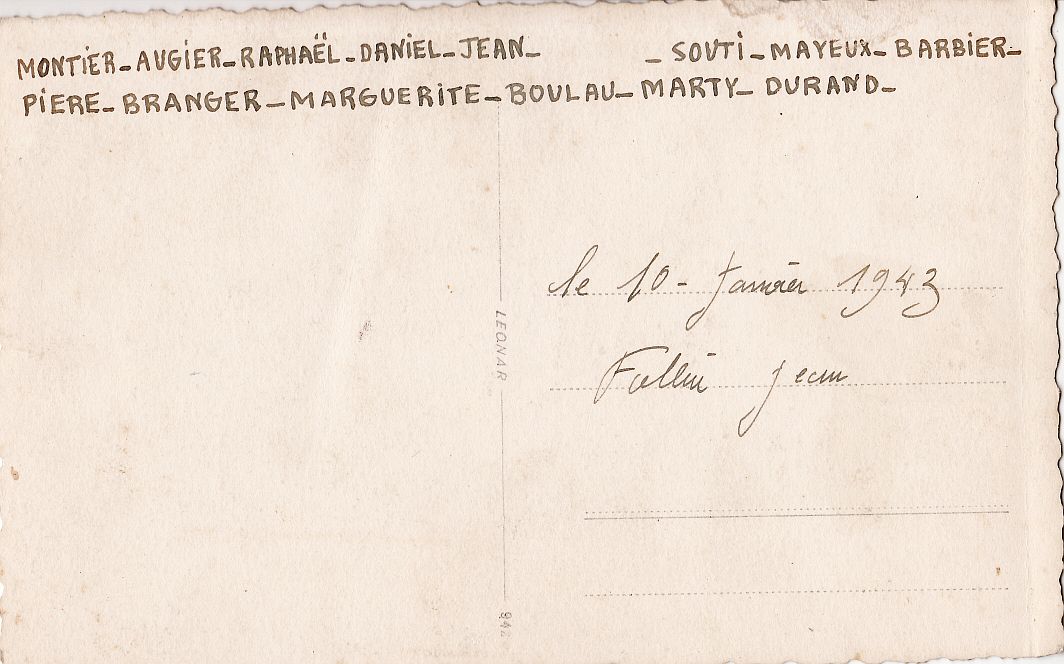 MONTIER - AUGIER - RAPHAËL - DANIEL - JEAN - - SOUTI - MAYEUX - BARBIER -
PIERE - BRANGER - MARGUERITE - BOULAU - MARTY - DURAND -
le 10 - Janvier 1943
Jean
LEONAR